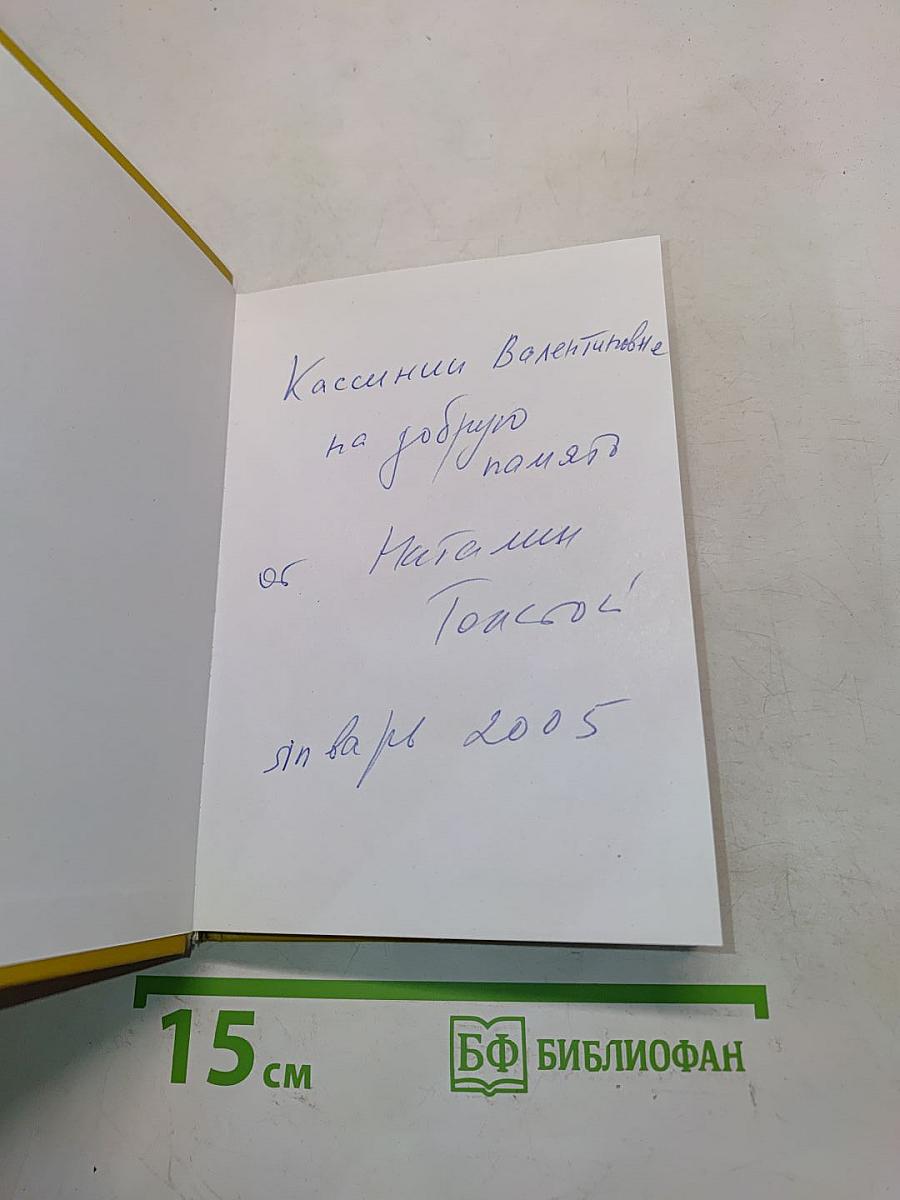 Кассинии Валентиновне
на добрую
память
от Наталии
Толстой
январь 2005
15 см
БФ БИБЛИОФАН